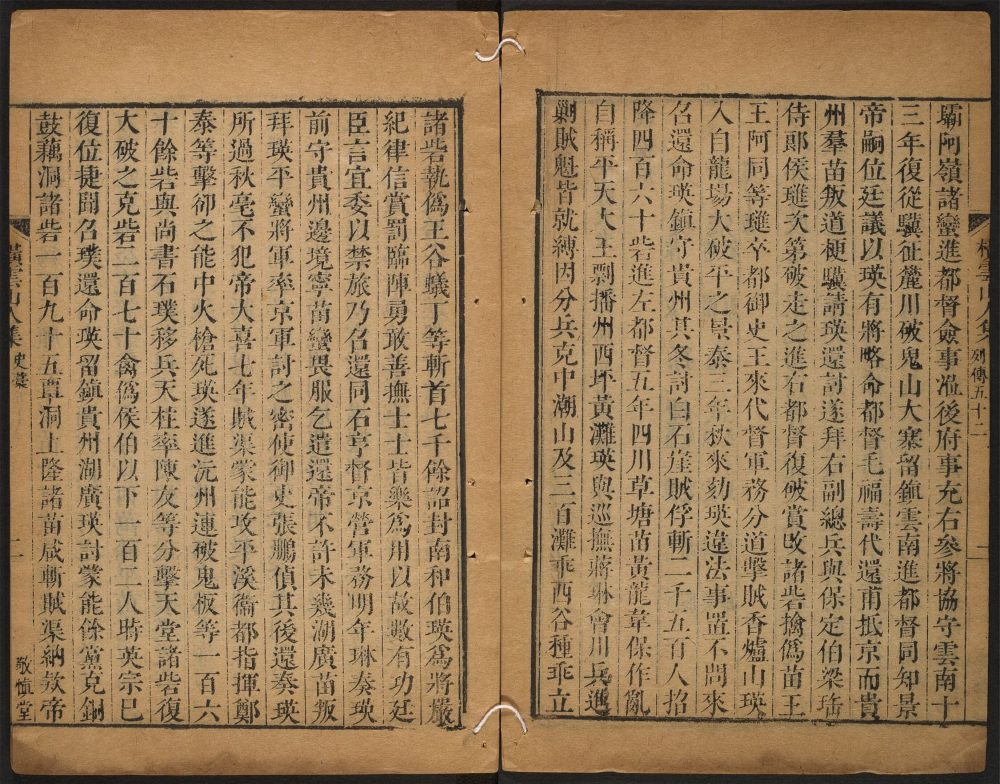 壩阿嶺諸蠻進都督僉事涖後府事充右參將協守雲南十
三年復從驥征麓川破鬼山大寨留鎮雲南進都督同知景
帝嗣位廷議以瑛有將略命都督毛福壽代還甫抵京而貴
州羣苗叛道梗驥請瑛還討遂拜右副總兵與保定伯梁珤
侍郞侯璡次第破走之進右都督復破賞改諸砦擒僞苗王
王阿同等璡卒都御史王來代督軍務分道擊賊香爐山瑛
入自龍場大破平之景泰三年秋來劾瑛違法事置不問來
召還命瑛鎮守貴州其冬討白石崖賊俘斬二千五百人招
降四百六十砦進左都督五年四川草塘苗黃龍韋保作亂
自稱平天大王剽播州西坪黃灘瑛與巡撫蔣琳會川兵進
剿賊魁皆就縛因分兵克中潮山及三百灘乖西谷種乖立
橫雲山人集 列傳五十二
諸砦執僞王谷蟻丁等斬首七千餘詔封南和伯瑛爲將嚴
紀律信賞罰臨陣勇敢善撫士士皆樂爲用以故數有功廷
臣言宜委以禁旅乃召還同石亨督京營軍務明年琳奏瑛
前守貴州邊境寧苗蠻畏服乞遣還帝不許未幾湖廣苗叛
拜瑛平蠻將軍率京軍討之密使御史張鵬偵其後還奏瑛
所過秋毫不犯帝大喜七年賊渠蒙能攻平溪衞都指揮鄭
泰等擊卻之能中火槍死瑛遂進沅州連破鬼板等一百六
十餘砦與尚書石璞移兵天柱率陳友等分擊天堂諸砦復
大破之克砦二百七十禽僞侯伯以下一百二人時英宗已
復位捷聞召璞還命瑛留鎮貴州湖廣瑛討蒙能餘黨克銅
鼓藕洞諸砦一百九十五覃洞上隆諸苗咸斬賊渠納欵帝
橫雲山人集 史藁
二
敬愼堂